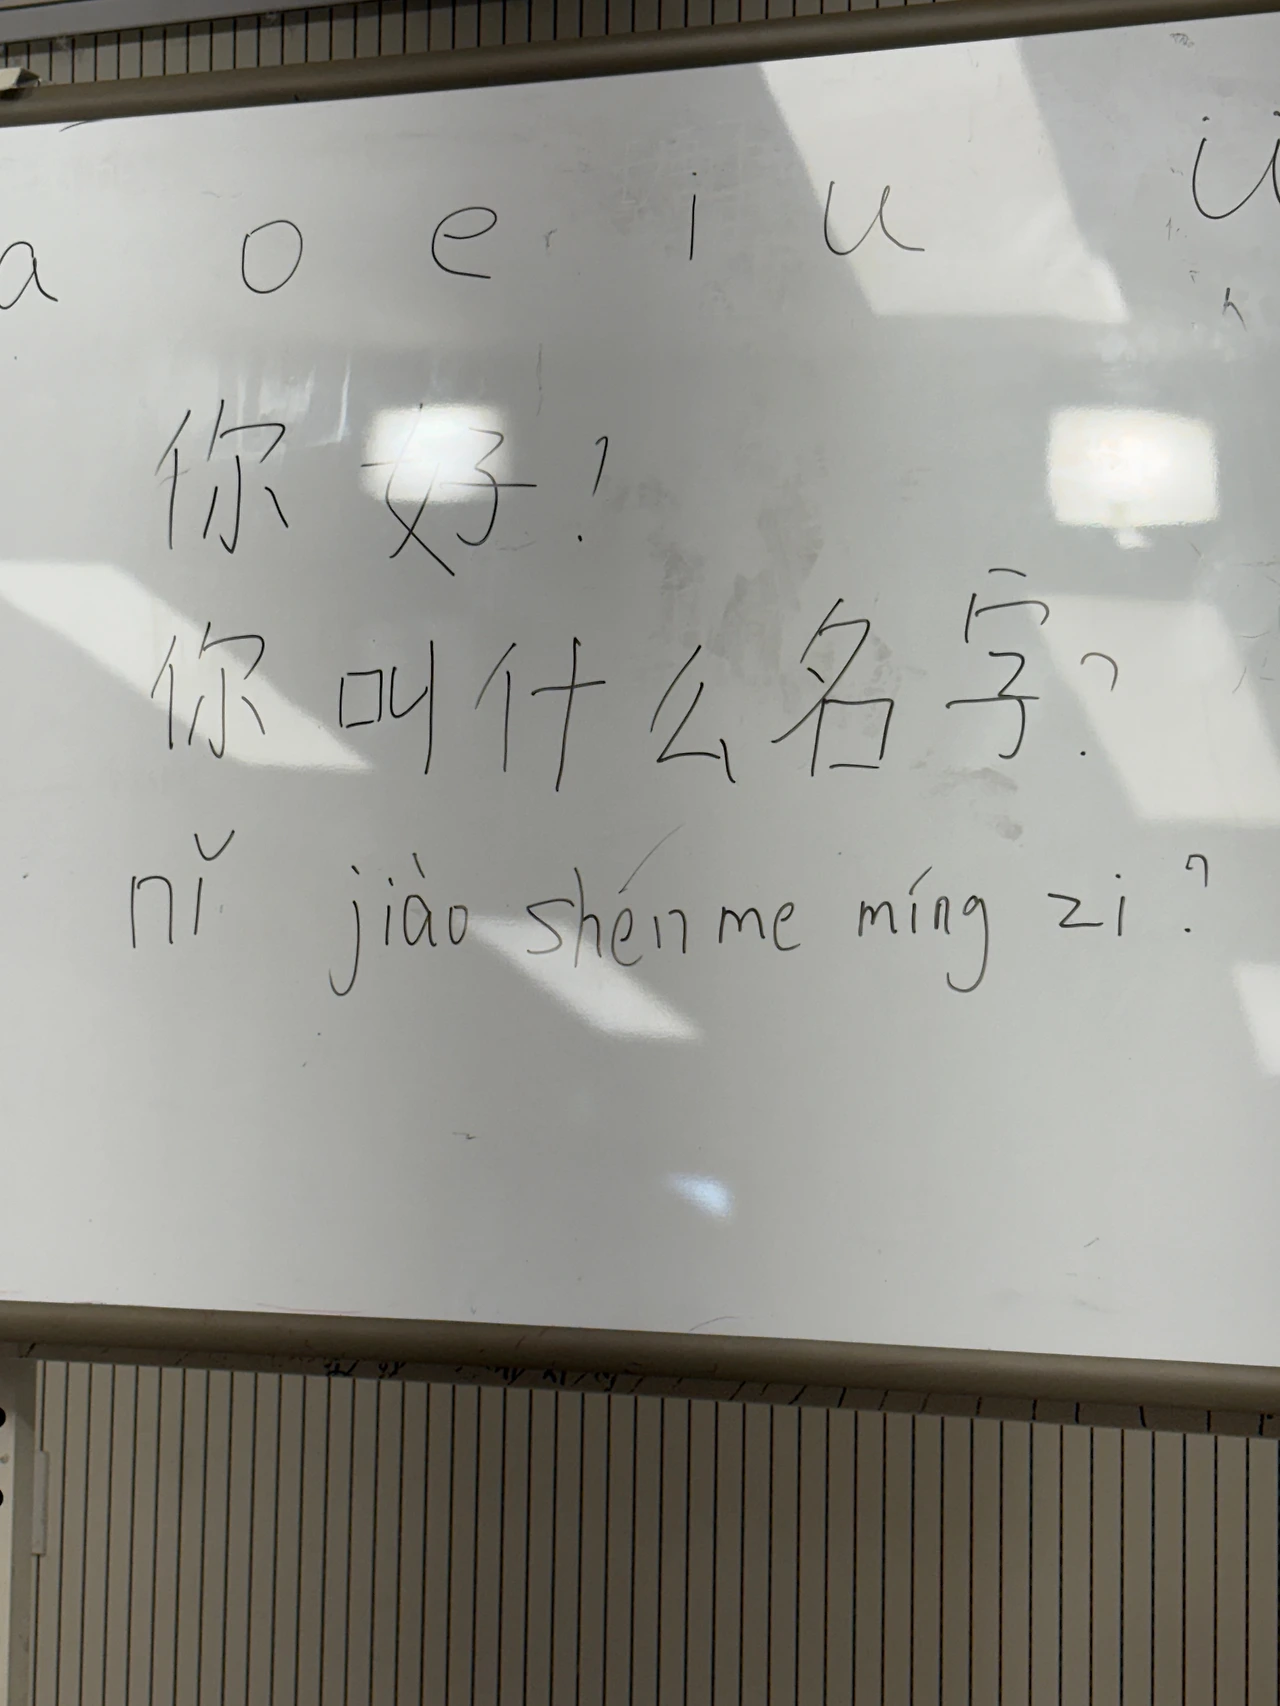 a o e i u ü
你好！
你叫什么名字？
nǐ jiào shénme míng zi?